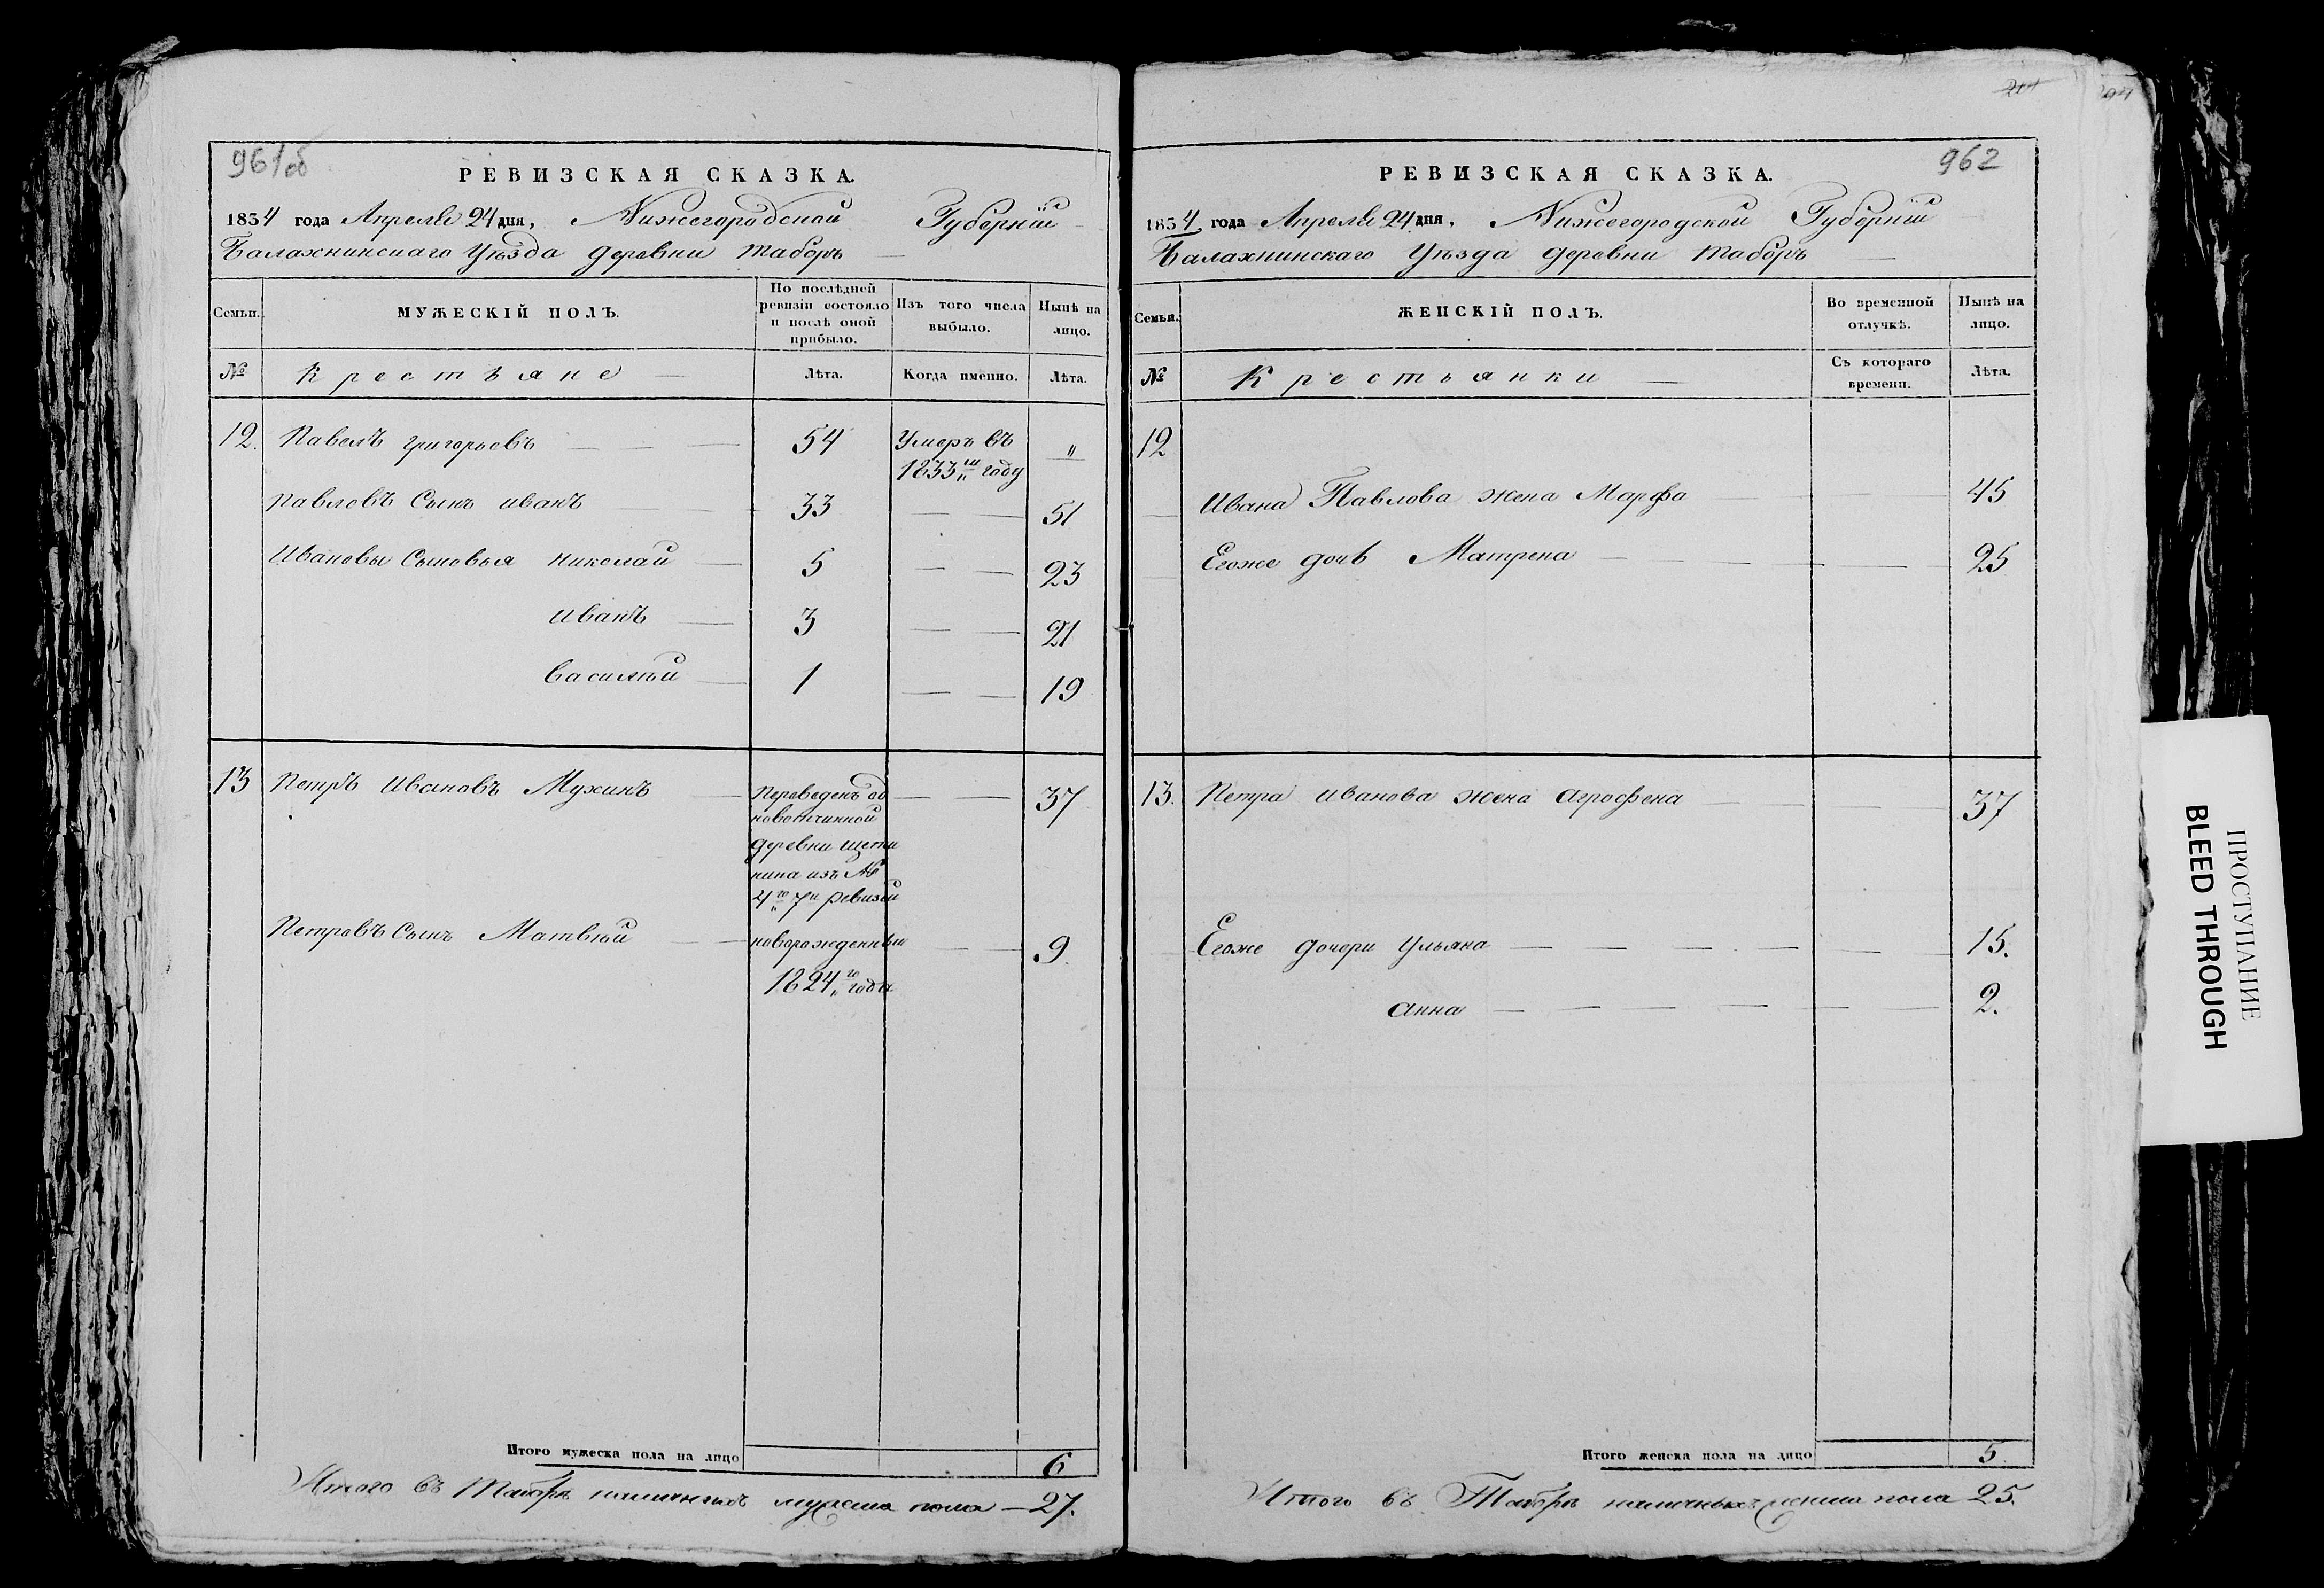 961об
РЕВИЗСКАЯ СКАЗКА.
1834 года Апреля 24 дня, Нижегородской Губернiи
Балахнинскаго Уѣзда деревни Таборъ
Семьи.
МУЖЕСКIЙ ПОЛЪ.
По послѣдней ревизiи состояло и послѣ оной прибыло.
Изъ того числа выбыло.
Нынѣ на лицо.
№
Крестьяне
Лѣта.
Когда именно.
Лѣта.
12. Павелъ григорьевъ 54 Умеръ въ 1833м году "
Павловъ Сынъ иванъ 33 51
Ивановы Сыновья николай 5 23
иванъ 3 21
василiй 1 19
13 Петръ Ивановъ Мухинъ 37
Переведенъ од
новотчинной
деревни щети
нина изъ №
4го 7й ревизiи
Петровъ Сынъ Матвѣй новорожденный 9.
1824го года
Итого мужеска пола на лицо 6
Итого въ Таборѣ наличныхъ мужеска пола — 27.
204
962
РЕВИЗСКАЯ СКАЗКА.
1834 года Апреля 24 дня, Нижегородской Губернiи
Балахнинскаго Уѣзда деревни Таборъ
Семьи.
ЖЕНСКIЙ ПОЛЪ.
Во временной отлучкѣ.
Нынѣ на лицо.
№
Крестьянки
Съ котораго времени.
Лѣта.
12
Ивана Павлова жена Марфа 45
Егоже дочь Матрена 25
13. Петра иванова жена агрофена 37
Егоже дочери Ульяна 15.
анна 2.
Итого женска пола на лицо 5
Итого въ Таборѣ наличныхъ женска пола 25.
ПРОСТУПАНИЕ
BLEED THROUGH